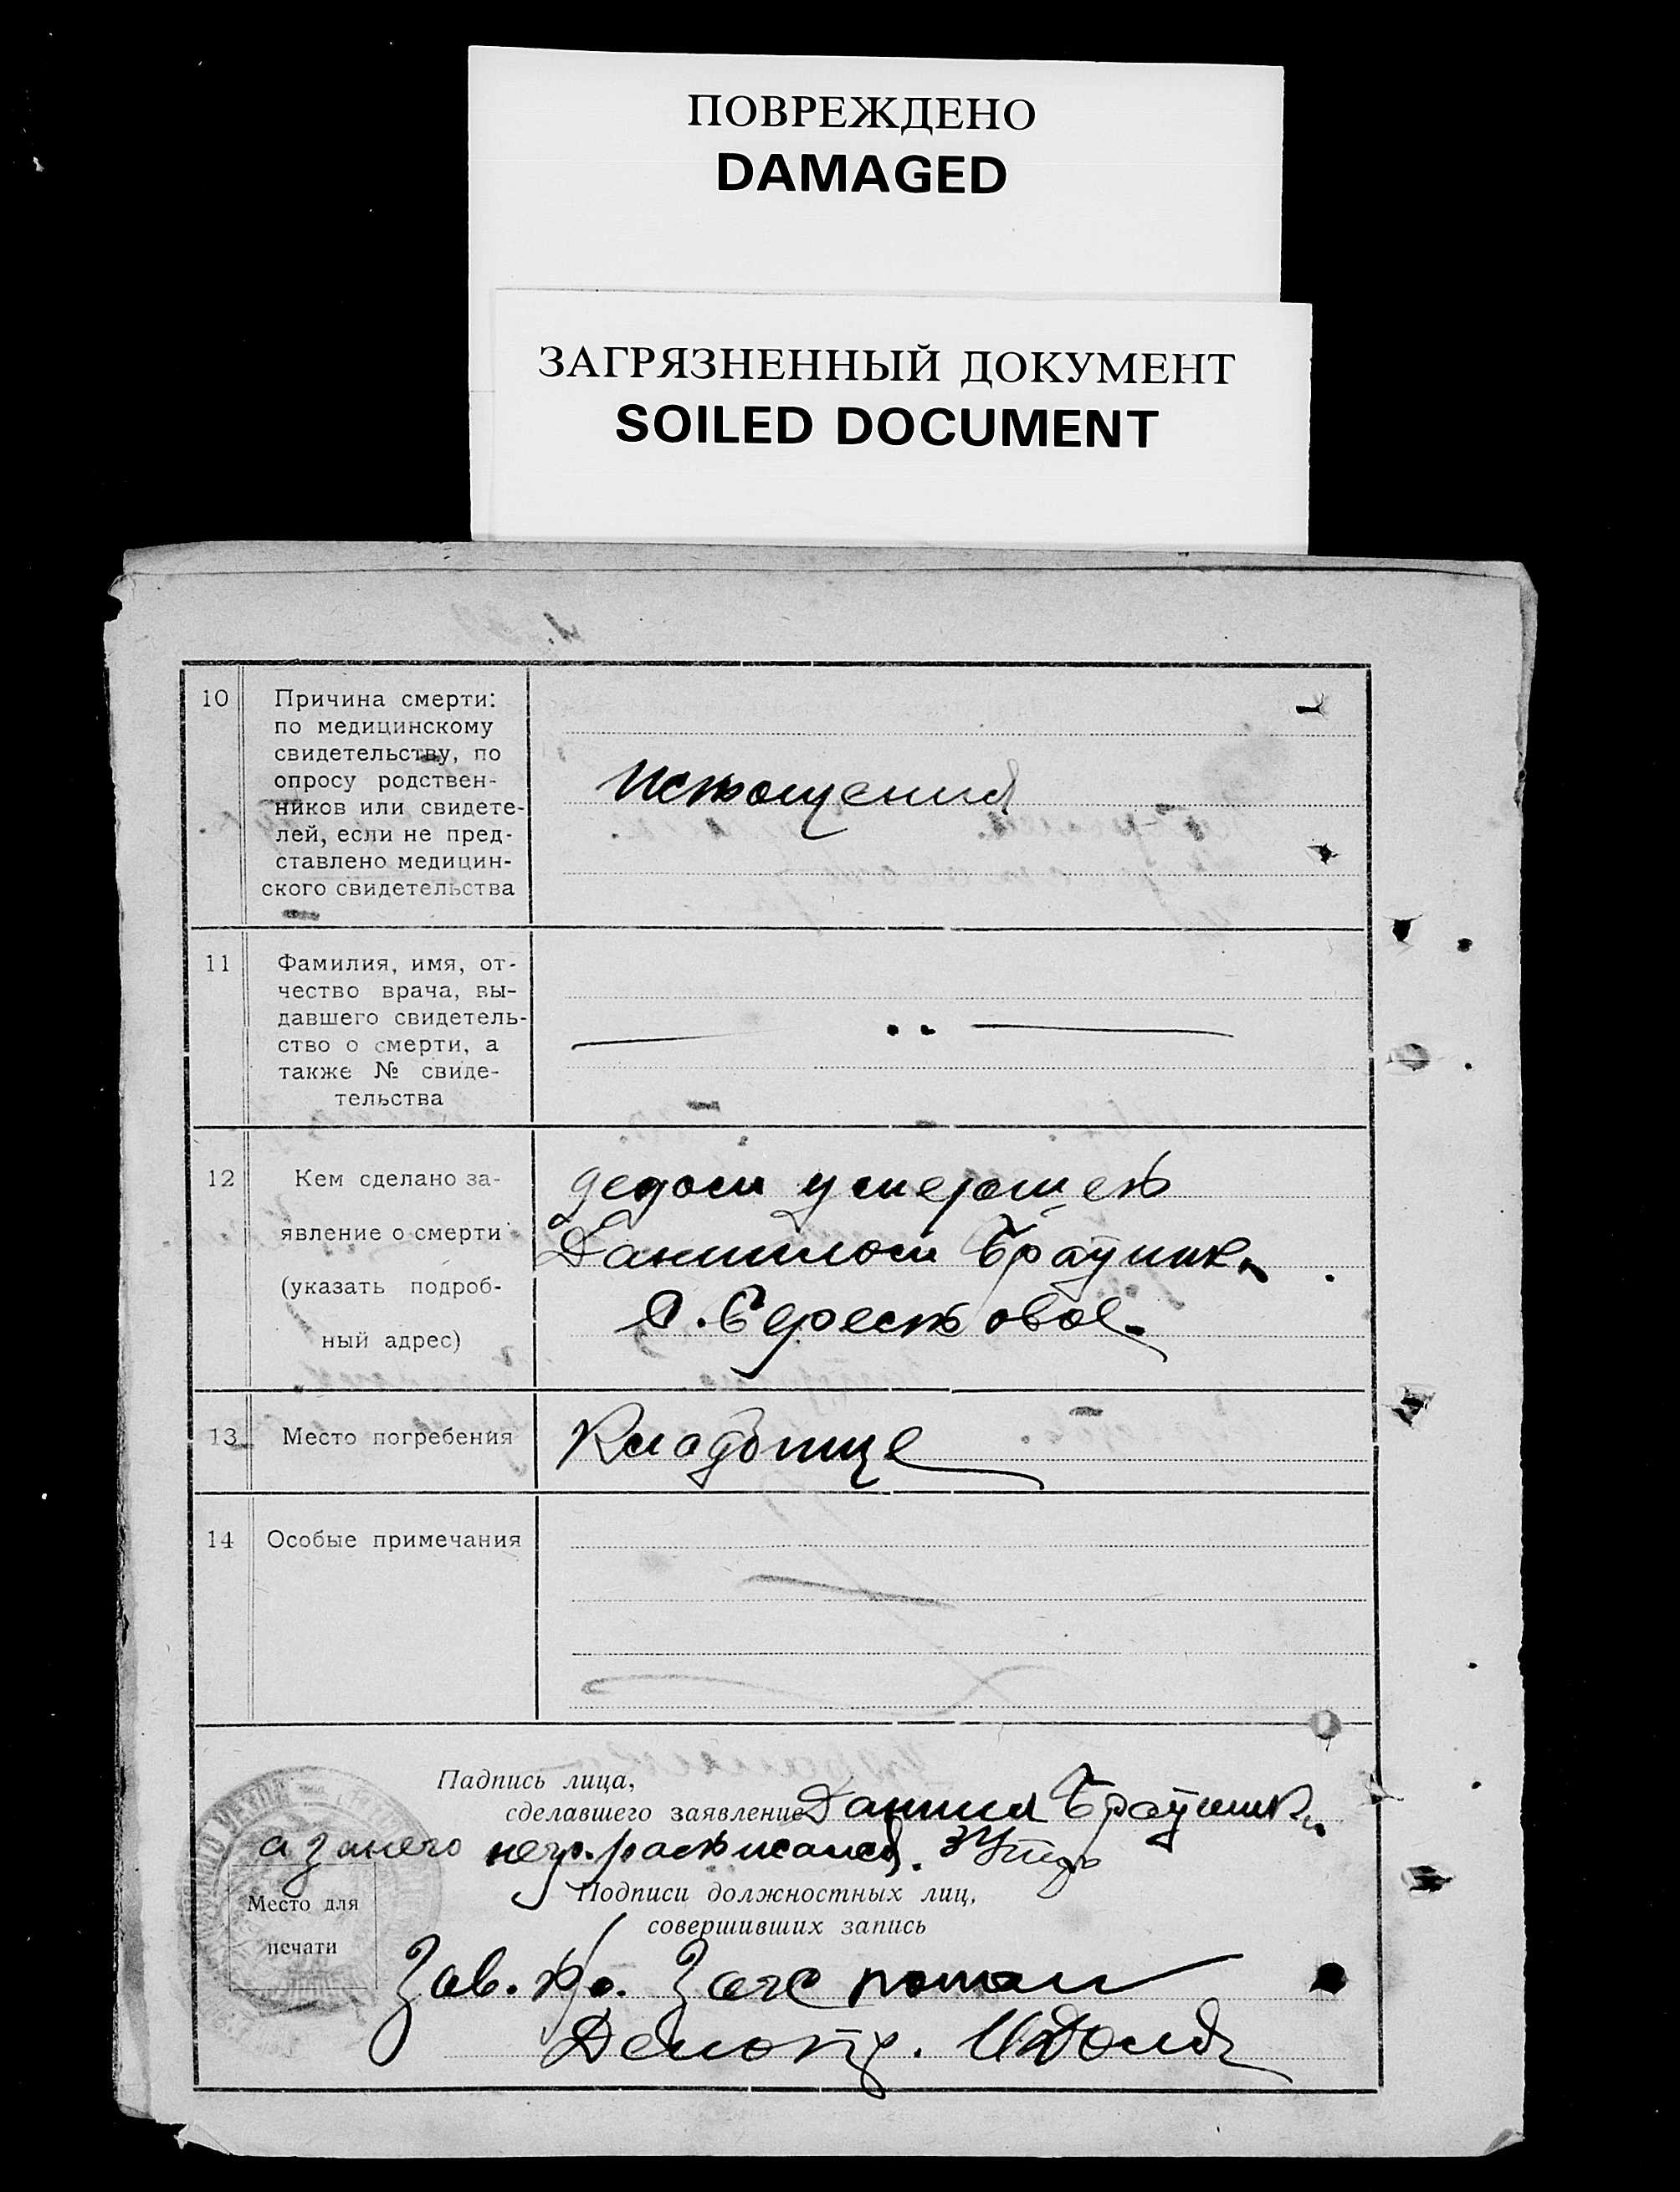 ПОВРЕЖДЕНО
DAMAGED
ЗАГРЯЗНЕННЫЙ ДОКУМЕНТ
SOILED DOCUMENT
10
Причина смерти:
по медицинскому
свидетельству, по
опросу родствен-
ников или свидете-
лей, если не пред-
ставлено медицин-
ского свидетельства
истощения
11
Фамилия, имя, от-
чество врача, вы-
давшего свидетель-
ство о смерти, а
также № свиде-
тельства
12
Кем сделано за-
явление о смерти
(указать подроб-
ный адрес)
дедом умершей
Данилом Браушк.
С. Берестовое
13
Место погребения
Кладбище
14
Особые примечания
Падпись лица,
сделавшего заявление Данил Браушк.
а за него негр. расписался.
Подписи должностных лиц,
совершивших запись
Место для
печати
Зав. Загс
Делопр.